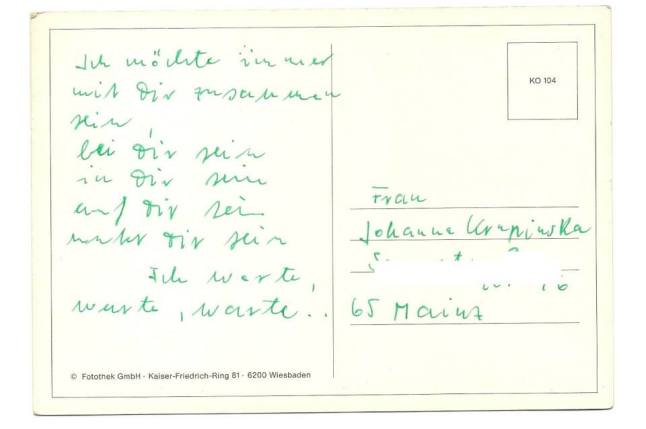 Ich möchte immer
mit Dir zusammen
sein,
bei Dir sein
in Dir sein
auf Dir sein
unter Dir sein
Ich warte,
warte, warte..
KO 104
Frau
Johanna Krupinska
65 Mainz
© Fotothek GmbH · Kaiser-Friedrich-Ring 81 · 6200 Wiesbaden